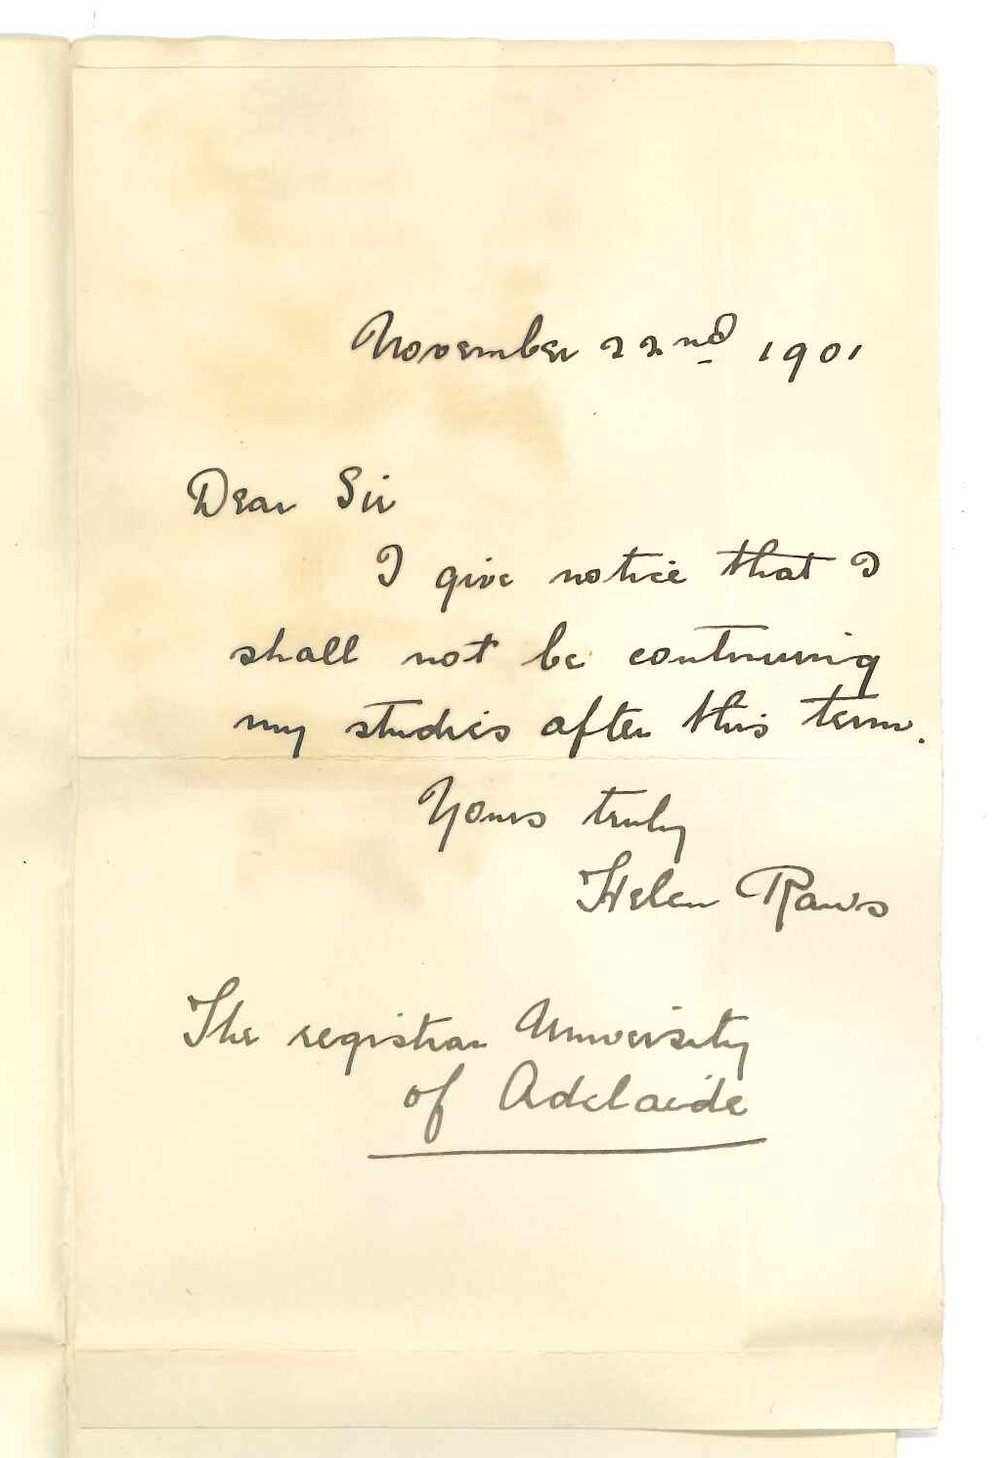 November 22nd 1901
Dear Sir
I give notice that I
shall not be continuing
my studies after this term.
Yours truly
Helen Raws
The registrar University
of Adelaide